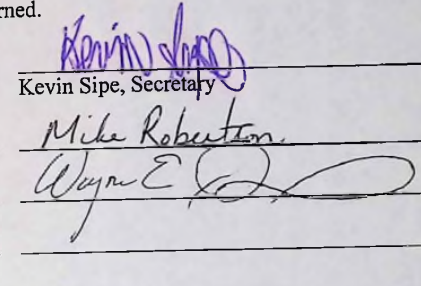 rned.
Kevin
Kevin Sipe, Secretary
Mike Robertson
Wayne E